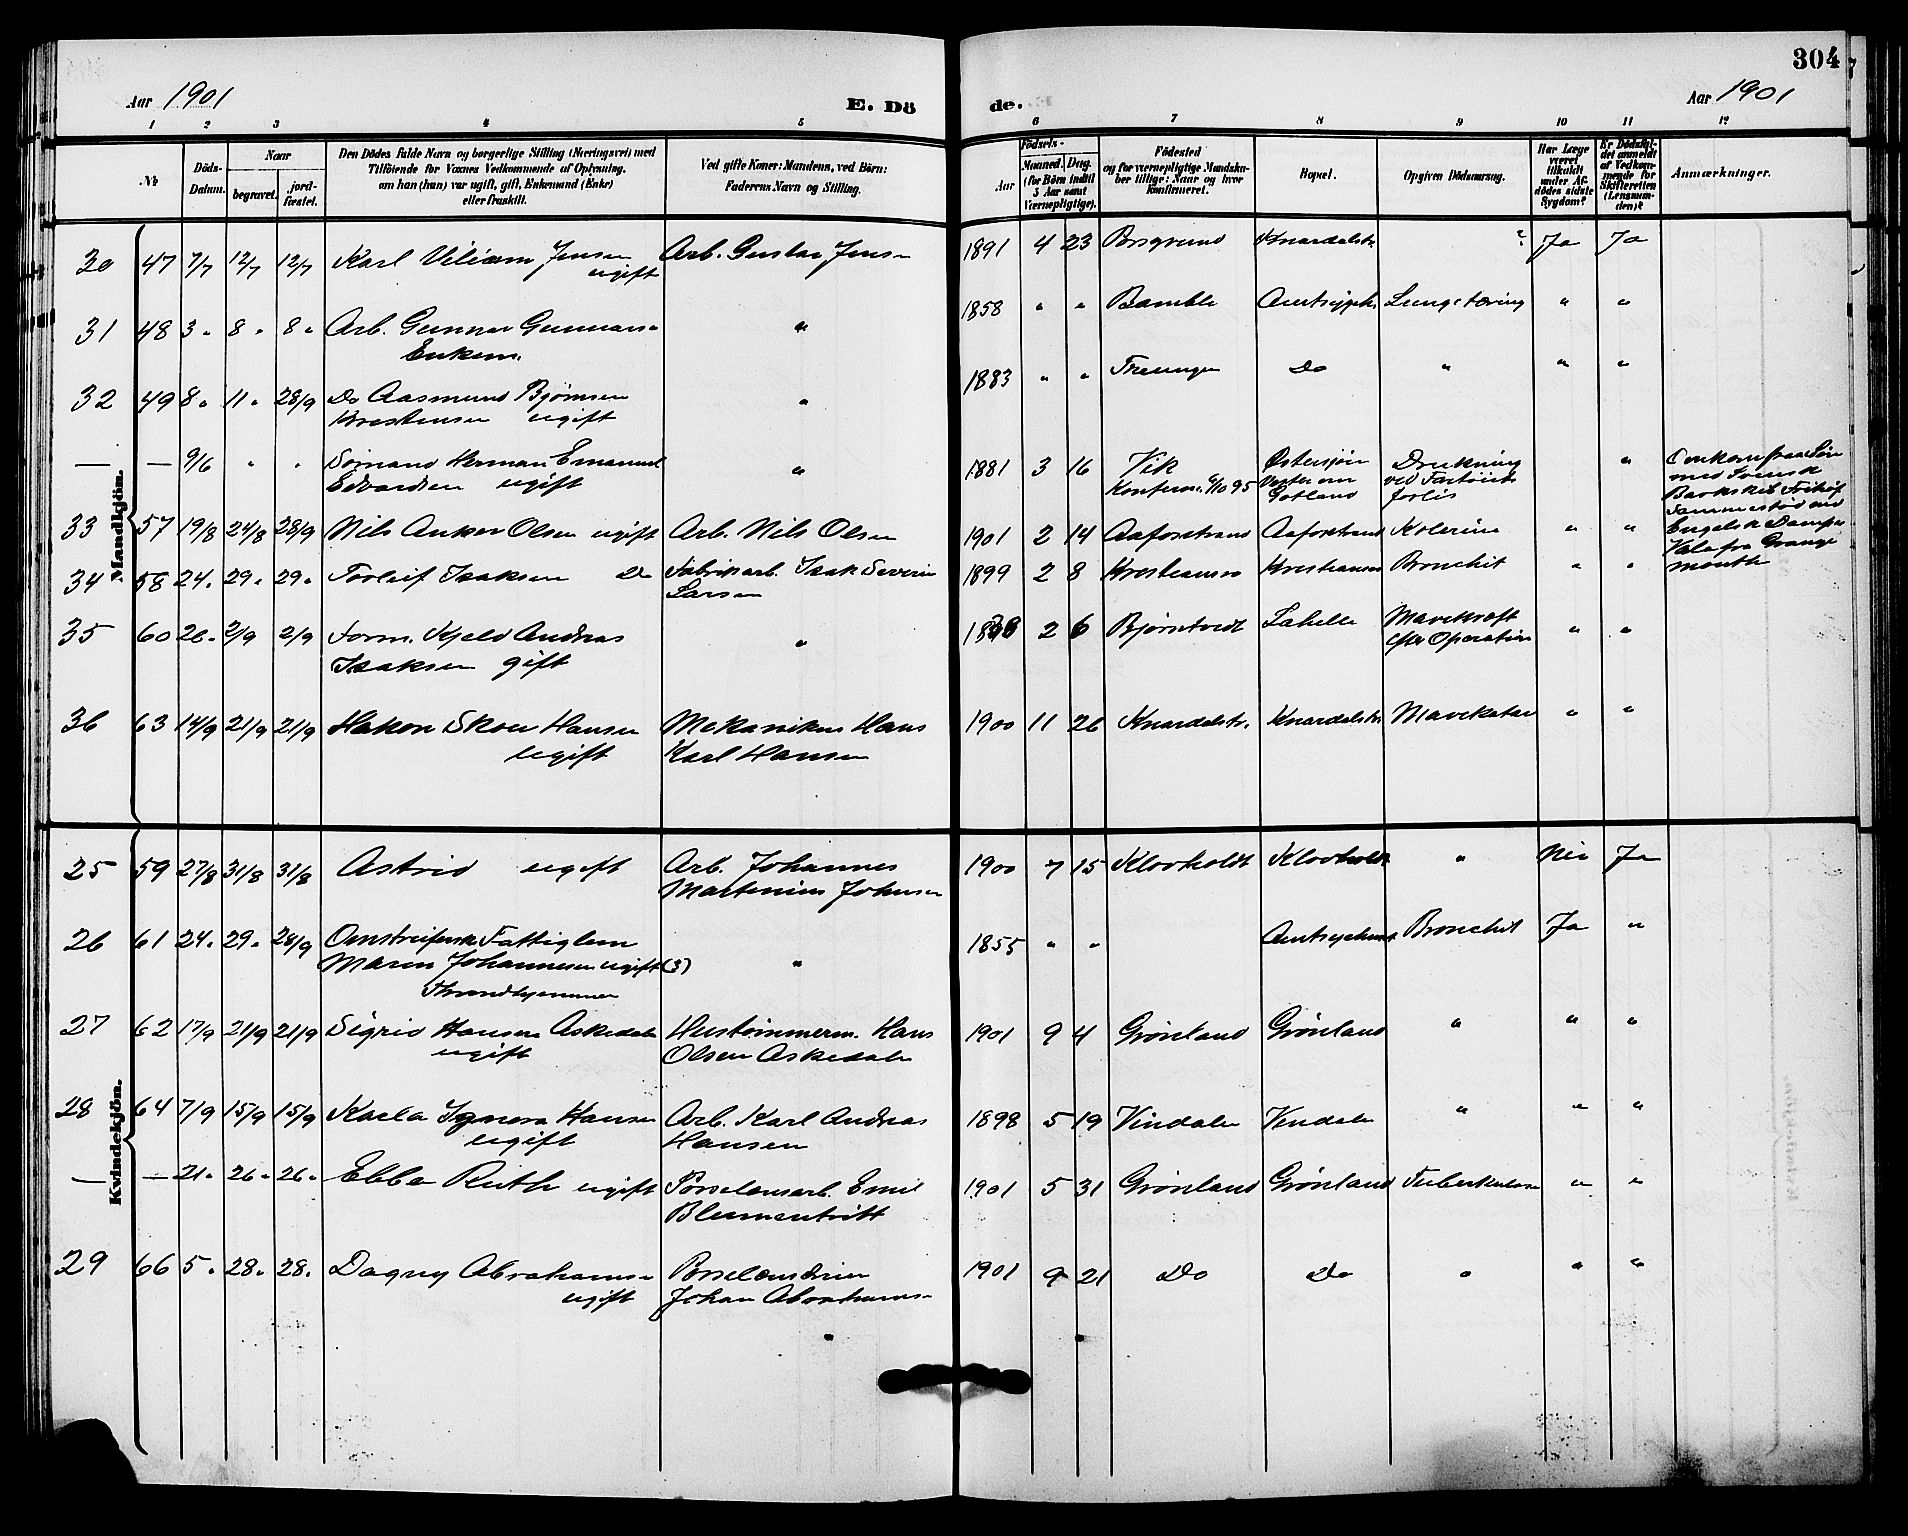 304
Aar 1901
E. Dö
de.
Aar 1901
1 2 3 4 5 6 7 8 9 10 11 12
No
Döds-
Datum.
Naar
begravet.
jord-
fæstet.
Den Dödes fulde Navn og borgerlige Stilling (Næringsvei) med
Tilföiende for Voxnes Vedkommende af Oplysning,
om han (hun) var ugift, gift, Enkemand (Enke)
eller fraskilt.
Ved gifte Koner: Mandens, ved Börn:
Faderens Navn og Stilling.
Födsels-
Aar
Maaned. Dag.
(for Börn indtil
5 Aar samt
Værnepligtige).
Födested
og for værnepligtige Mandska-
ber tillige: Naar og hvor
konfirmeret.
Bopæl.
Opgiven Dödsaarsag.
Har Læge
været
tilkaldt
under Af-
dödes sidste
Sygdom?
Er Dödsfal-
det anmeldt
af Vedkom-
mende for
Skifteretten
(Lensman-
den)?
Anmærkninger.
Mandkjön.
30 47 7/7 12/7 12/7 Karl Viliam Jensen Arb. Gustav Jensen 1891 4 23 Porsgrund Knardalstr ? Ja Ja
ugift
31 48 3 " 8 " 8 " Arb. Gunnar Gunnars " 1858 " " Bamble Lungetæring " "
Enkem.
32 49 8 " 11 " 28/9 Do Aasmund Bjørnsen " 1883 " " Do " " "
Kristensen ugift
— — 9/6 " " Sømand Herman Emanuel " 1881 3 16 Vik Østersjön Drukning "
Edvardsen ugift
Konferm. 95 Vester om ved Fartöiets
Gotland forlis
Omkom
med Svensk
Barkskib
Sammestöd med
Engelsk Damper
fra Grange
mouth
33 57 19/8 24/8 28/9 Nils Anker Olsen ugift Arb. Nils Olsen 1901 2 14 Aaforstrand Aaforstrand Kolerine " "
34 58 24 " 29 " 29 " Torleif Isaksen Do Fabrikarb. Isak Severin 1899 2 8 Bronchit " "
Larsen
35 60 26 " 2/9 2/9 Form. Kjeld Andreas " 2 6 Bjørntvedt Lahelle Mavekræft " "
Isaksen gift efter Operation
36 63 14/9 21/9 21/9 Hakon Skou Hansen Mekanikus Hans 1900 11 26 Knardalstr. Knardalstr. Mavekatar " "
ugift Karl Hansen
Kvindekjön.
25 59 27/8 31/8 31/8 Astrid ugift Arb. Johannes 1900 7 15 Klovholdt Klovholdt " Nei Ja
Martinius Johnsen
26 61 24 " 29 " 28/9 Omstreifersk Fattiglem " 1855 " " Bronchit Ja "
Maren Johannesen ugift (3)
Throndhjemmer
27 62 17/9 21/9 21/9 Sigrid Hansen Askedalen Hustømmerm. Hans 1901 9 4 Grönland Grönland " " "
ugift Olsen Askedalen
28 64 7/9 15/9 15/9 Karla Hansen Arb. Karl Andreas 1898 5 19 Vindalen Vindalen " " "
ugift Hansen
— — 21 " 26 " 26 " Ebba Ruth ugift Porselænsarb. Emil 1901 5 31 Grönland Grönland Tuberkulose " "
Blumentritt
29 66 5 " 28 " 28 " Dagny Abrahams Porselænsdreier 1901 9 21 Do Do " " "
ugift Johan Abrahams